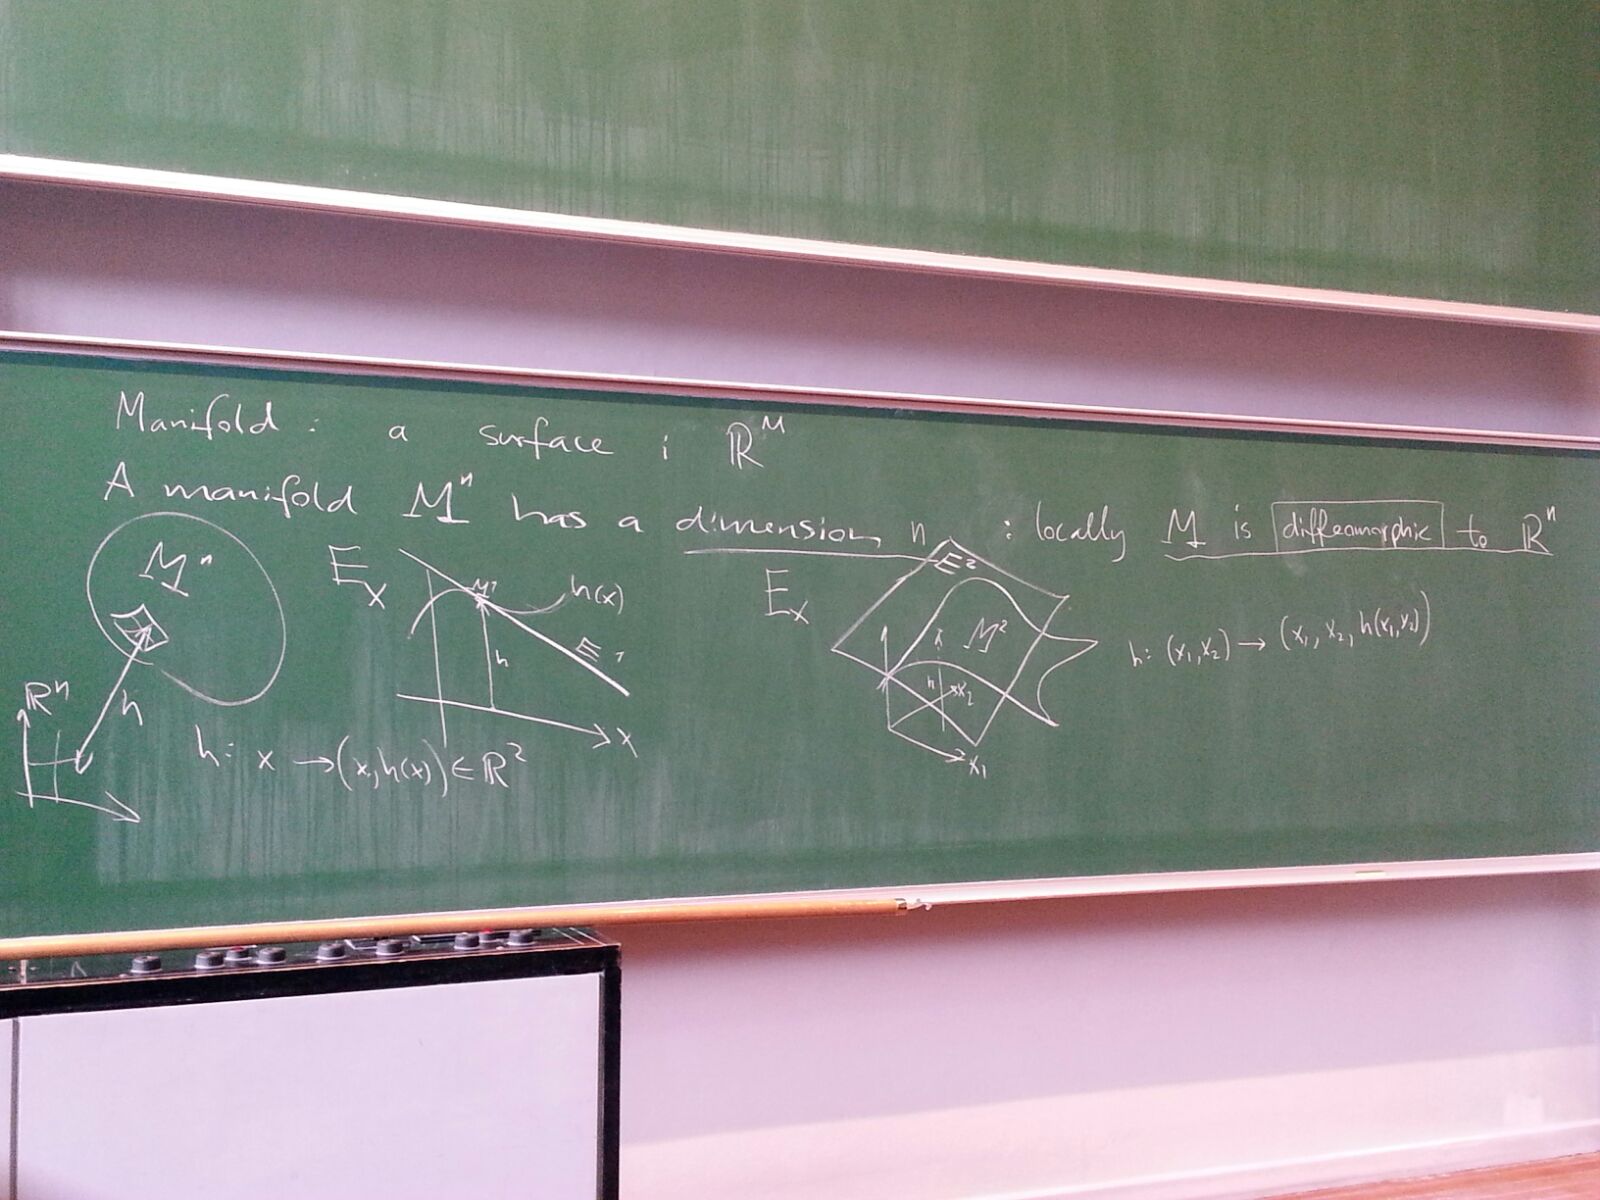 Manifold : a surface i ℝᴹ
A manifold Mⁿ has a dimension n : locally M is diffeomorphic to ℝⁿ
Mⁿ
ℝⁿ
h
Ex
M¹
h(x)
E¹
h
x
h: x → (x, h(x)) ∈ ℝ²
Ex
E²
M²
h
x₂
x₁
h: (x₁, x₂) → (x₁, x₂, h(x₁, x₂))